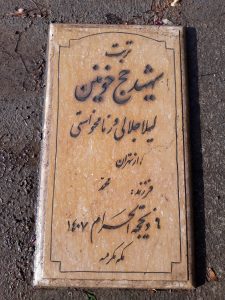 تربت
شهید حج خونین
لیلا جلالی ورنامخواستی
از تهران
فرزند: محمد
۶ ذیحجه الحرام ۱۴۰۷
مکه مکرمه